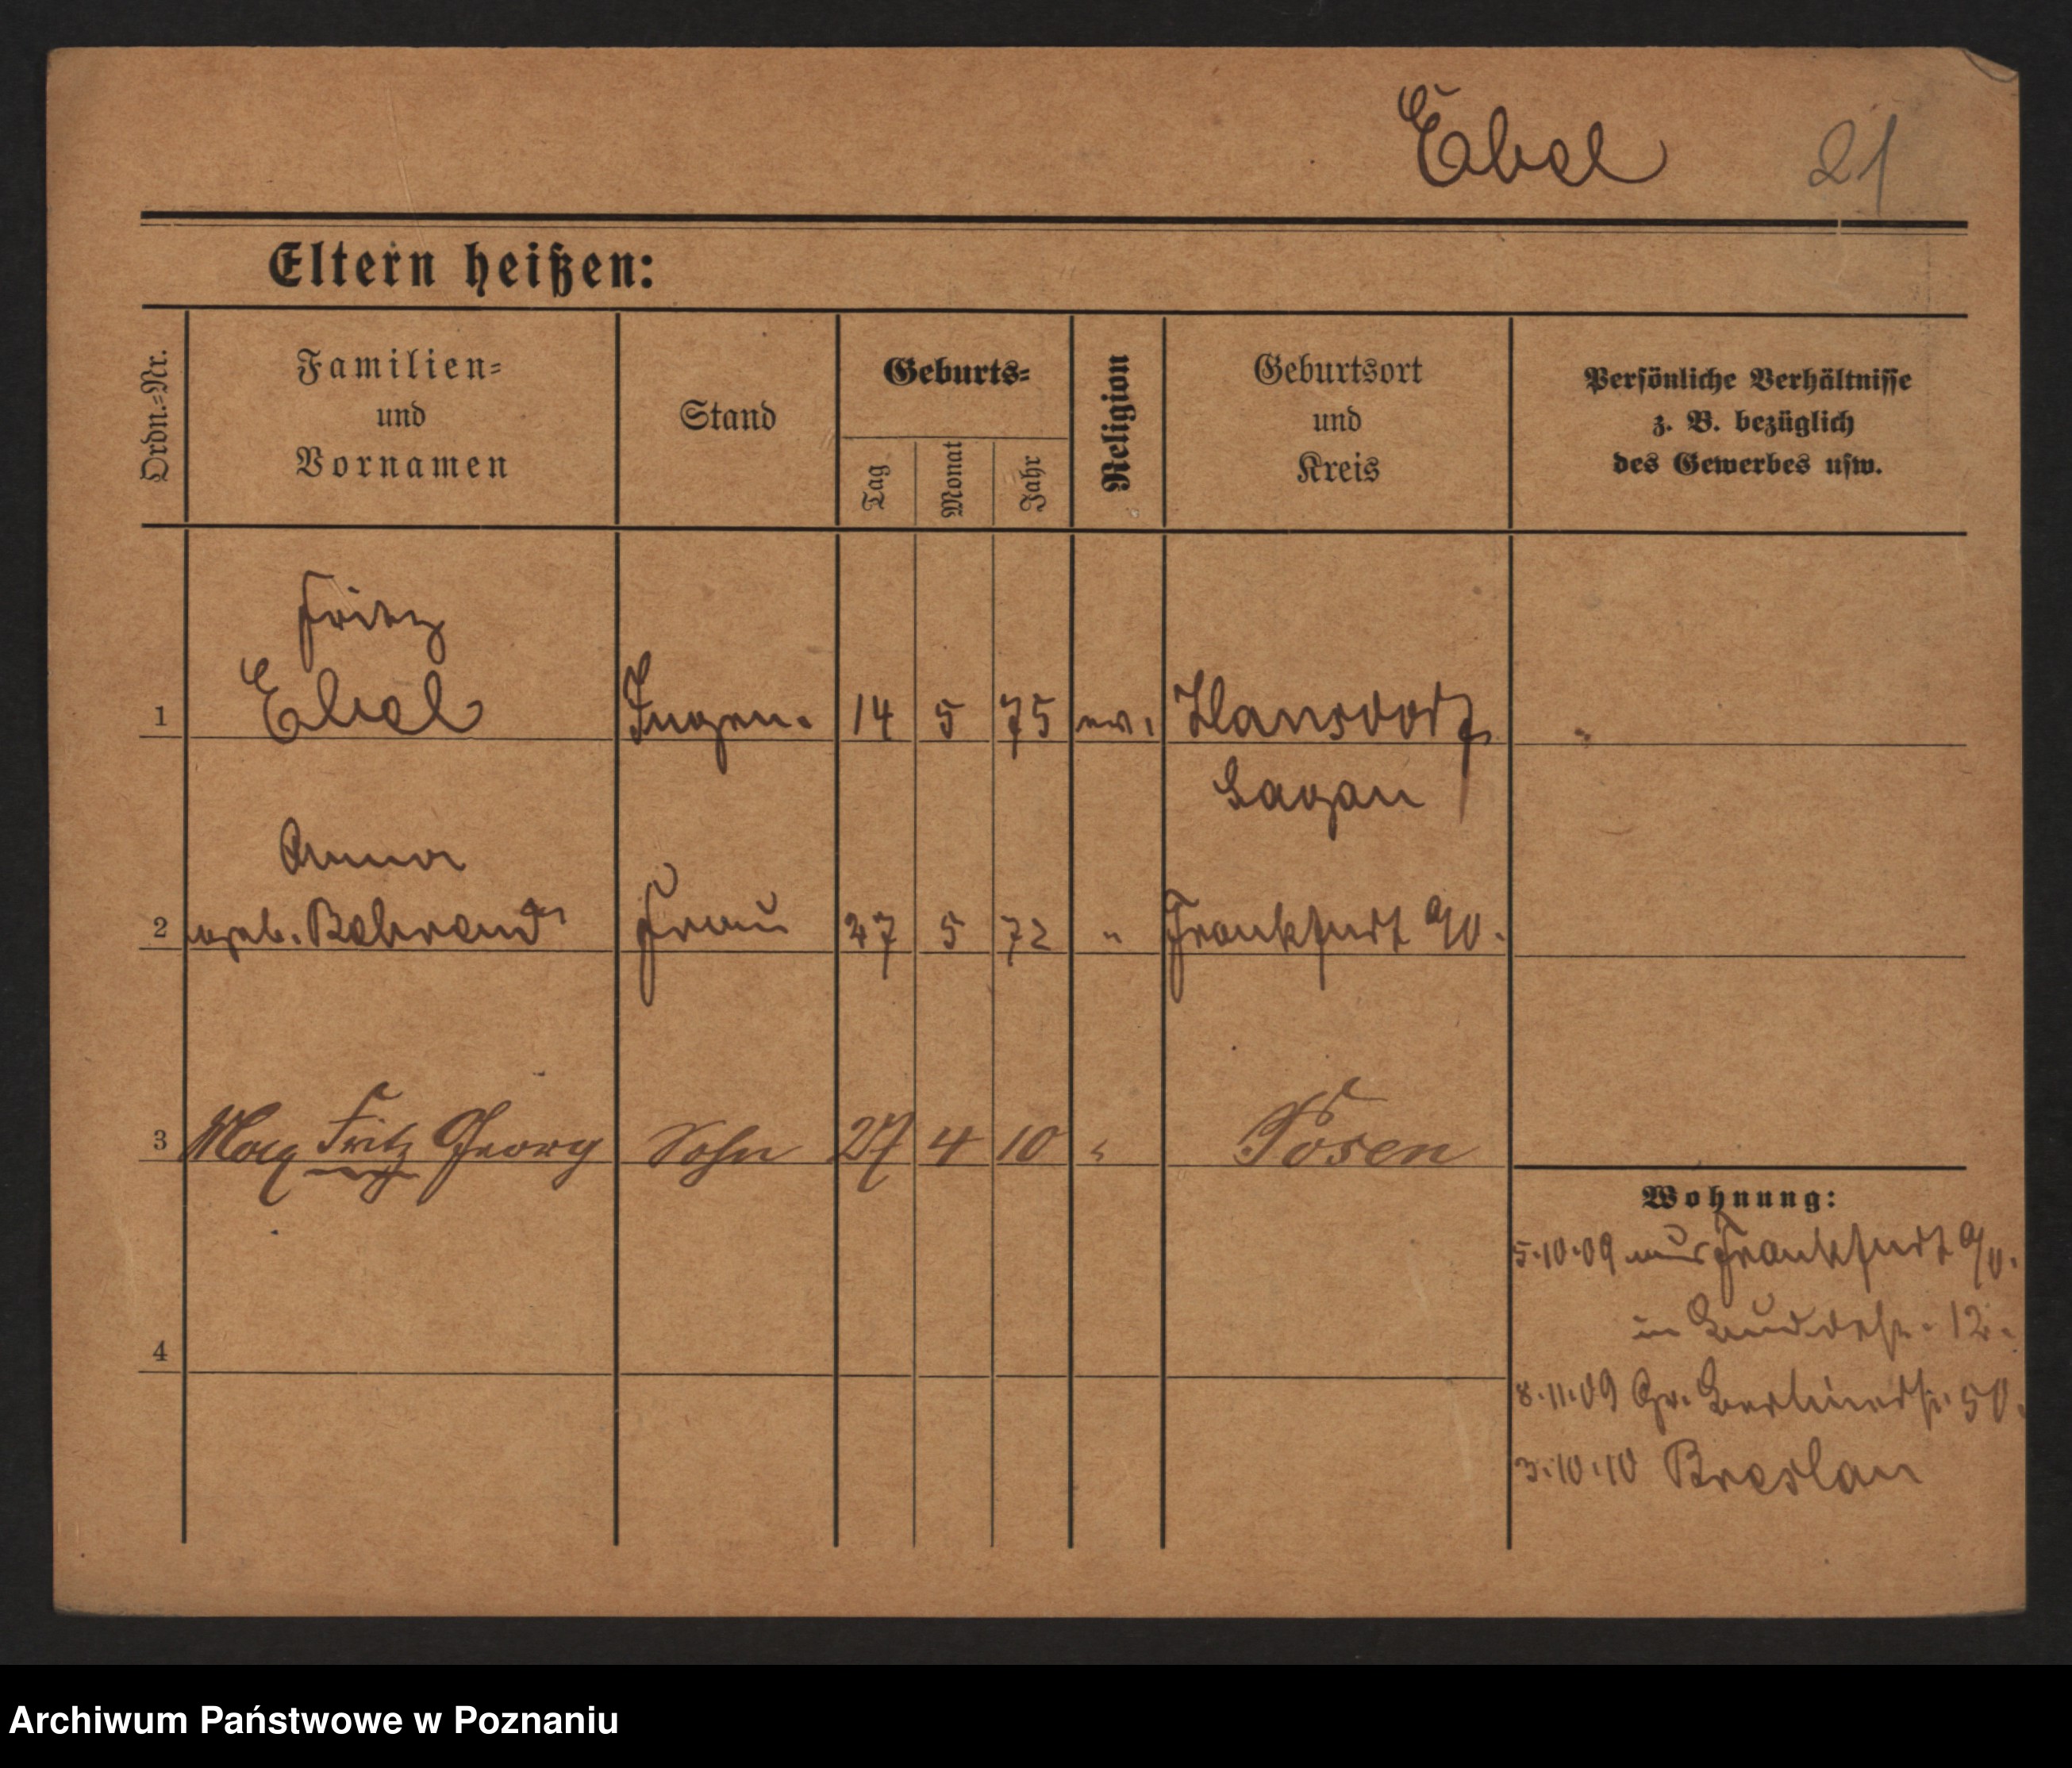 Ebel 21
Eltern heißen:
Ordn.=Nr.
Familien=
und
Vornamen
Stand
Geburts=
Tag
Monat
Jahr
Religion
Geburtsort
und
Kreis
Persönliche Verhältnisse
z. B. bezüglich
des Gewerbes usw.
Fritz
1 Ebel Ingen. 14 5 75 ev. Hansdorf
Sagan
Anna
2 geb. Behrend Frau 27 5 72 " Frankfurt a/O.
3 Max Fritz Georg Sohn 27 4 10 " Posen
Wohnung:
5.10.09 aus Frankfurt a/O.
in 12.
4
8.11.09 Gr. Berlinerstr. 50.
3.10.10 Breslau
Archiwum Państwowe w Poznaniu